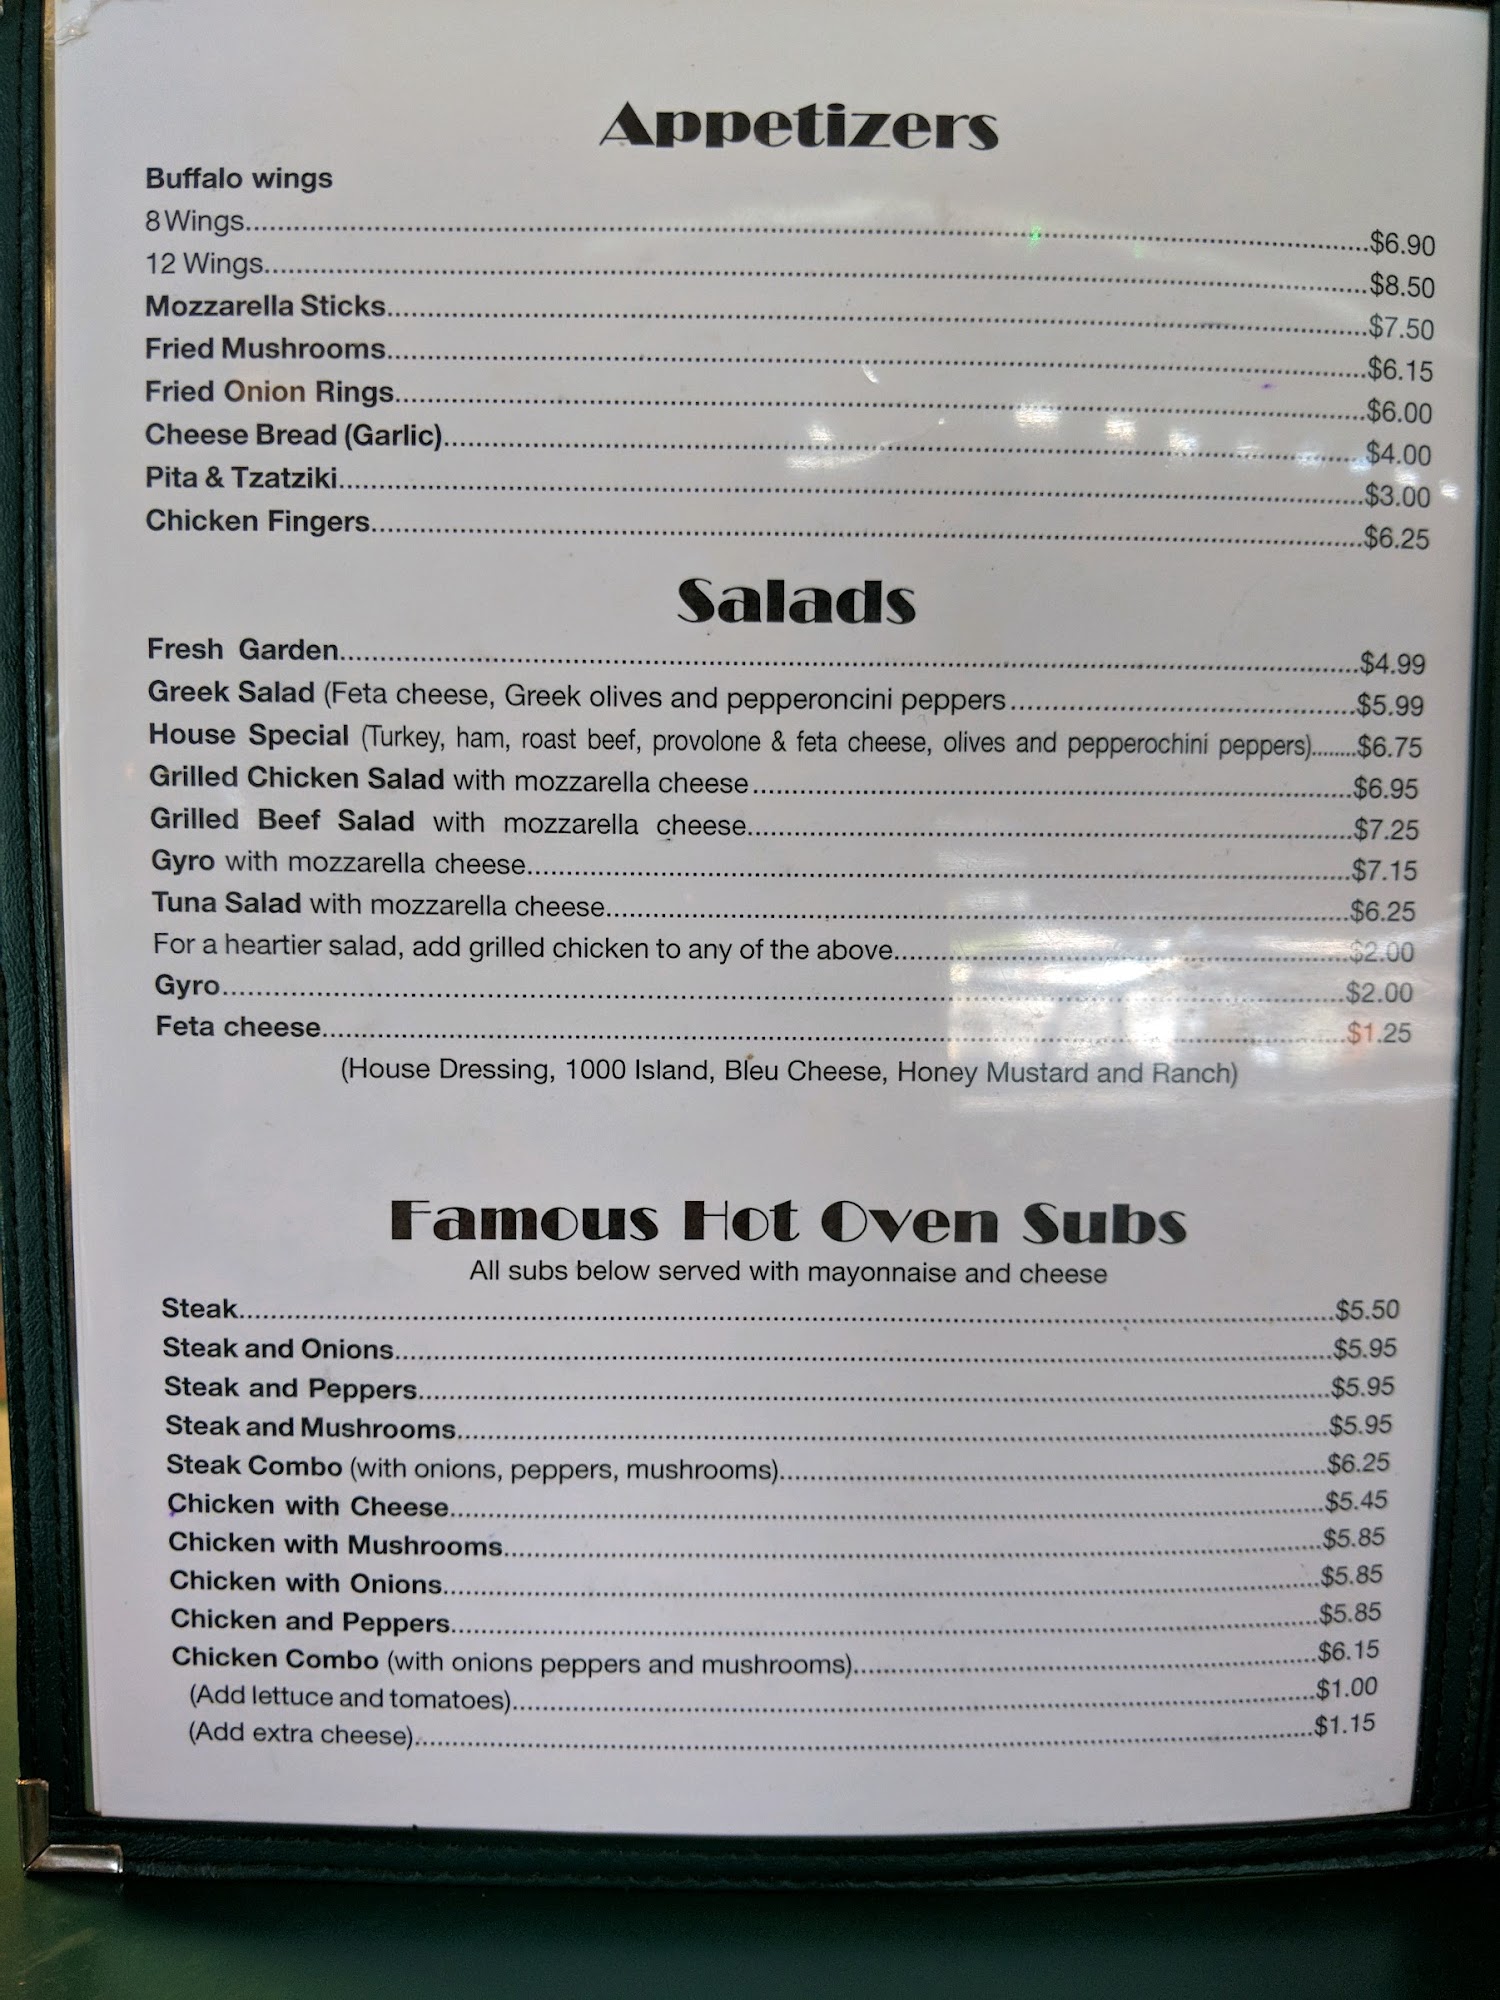 Appetizers
Buffalo wings
8 Wings...$6.90
12 Wings...$8.50
Mozzarella Sticks...$7.50
Fried Mushrooms...$6.15
Fried Onion Rings...$6.00
Cheese Bread (Garlic)...$4.00
Pita & Tzatziki...$3.00
Chicken Fingers...$6.25
Salads
Fresh Garden...$4.99
Greek Salad (Feta cheese, Greek olives and pepperoncini peppers...$5.99
House Special (Turkey, ham, roast beef, provolone & feta cheese, olives and pepperochini peppers)...$6.75
Grilled Chicken Salad with mozzarella cheese...$6.95
Grilled Beef Salad with mozzarella cheese...$7.25
Gyro with mozzarella cheese...$7.15
Tuna Salad with mozzarella cheese...$6.25
For a heartier salad, add grilled chicken to any of the above...$2.00
Gyro...$2.00
Feta cheese...$1.25
(House Dressing, 1000 Island, Bleu Cheese, Honey Mustard and Ranch)
Famous Hot Oven Subs
All subs below served with mayonnaise and cheese
Steak...$5.50
Steak and Onions...$5.95
Steak and Peppers...$5.95
Steak and Mushrooms...$5.95
Steak Combo (with onions, peppers, mushrooms)...$6.25
Chicken with Cheese...$5.45
Chicken with Mushrooms...$5.85
Chicken with Onions...$5.85
Chicken and Peppers...$5.85
Chicken Combo (with onions peppers and mushrooms)...$6.15
(Add lettuce and tomatoes)...$1.00
(Add extra cheese)...$1.15